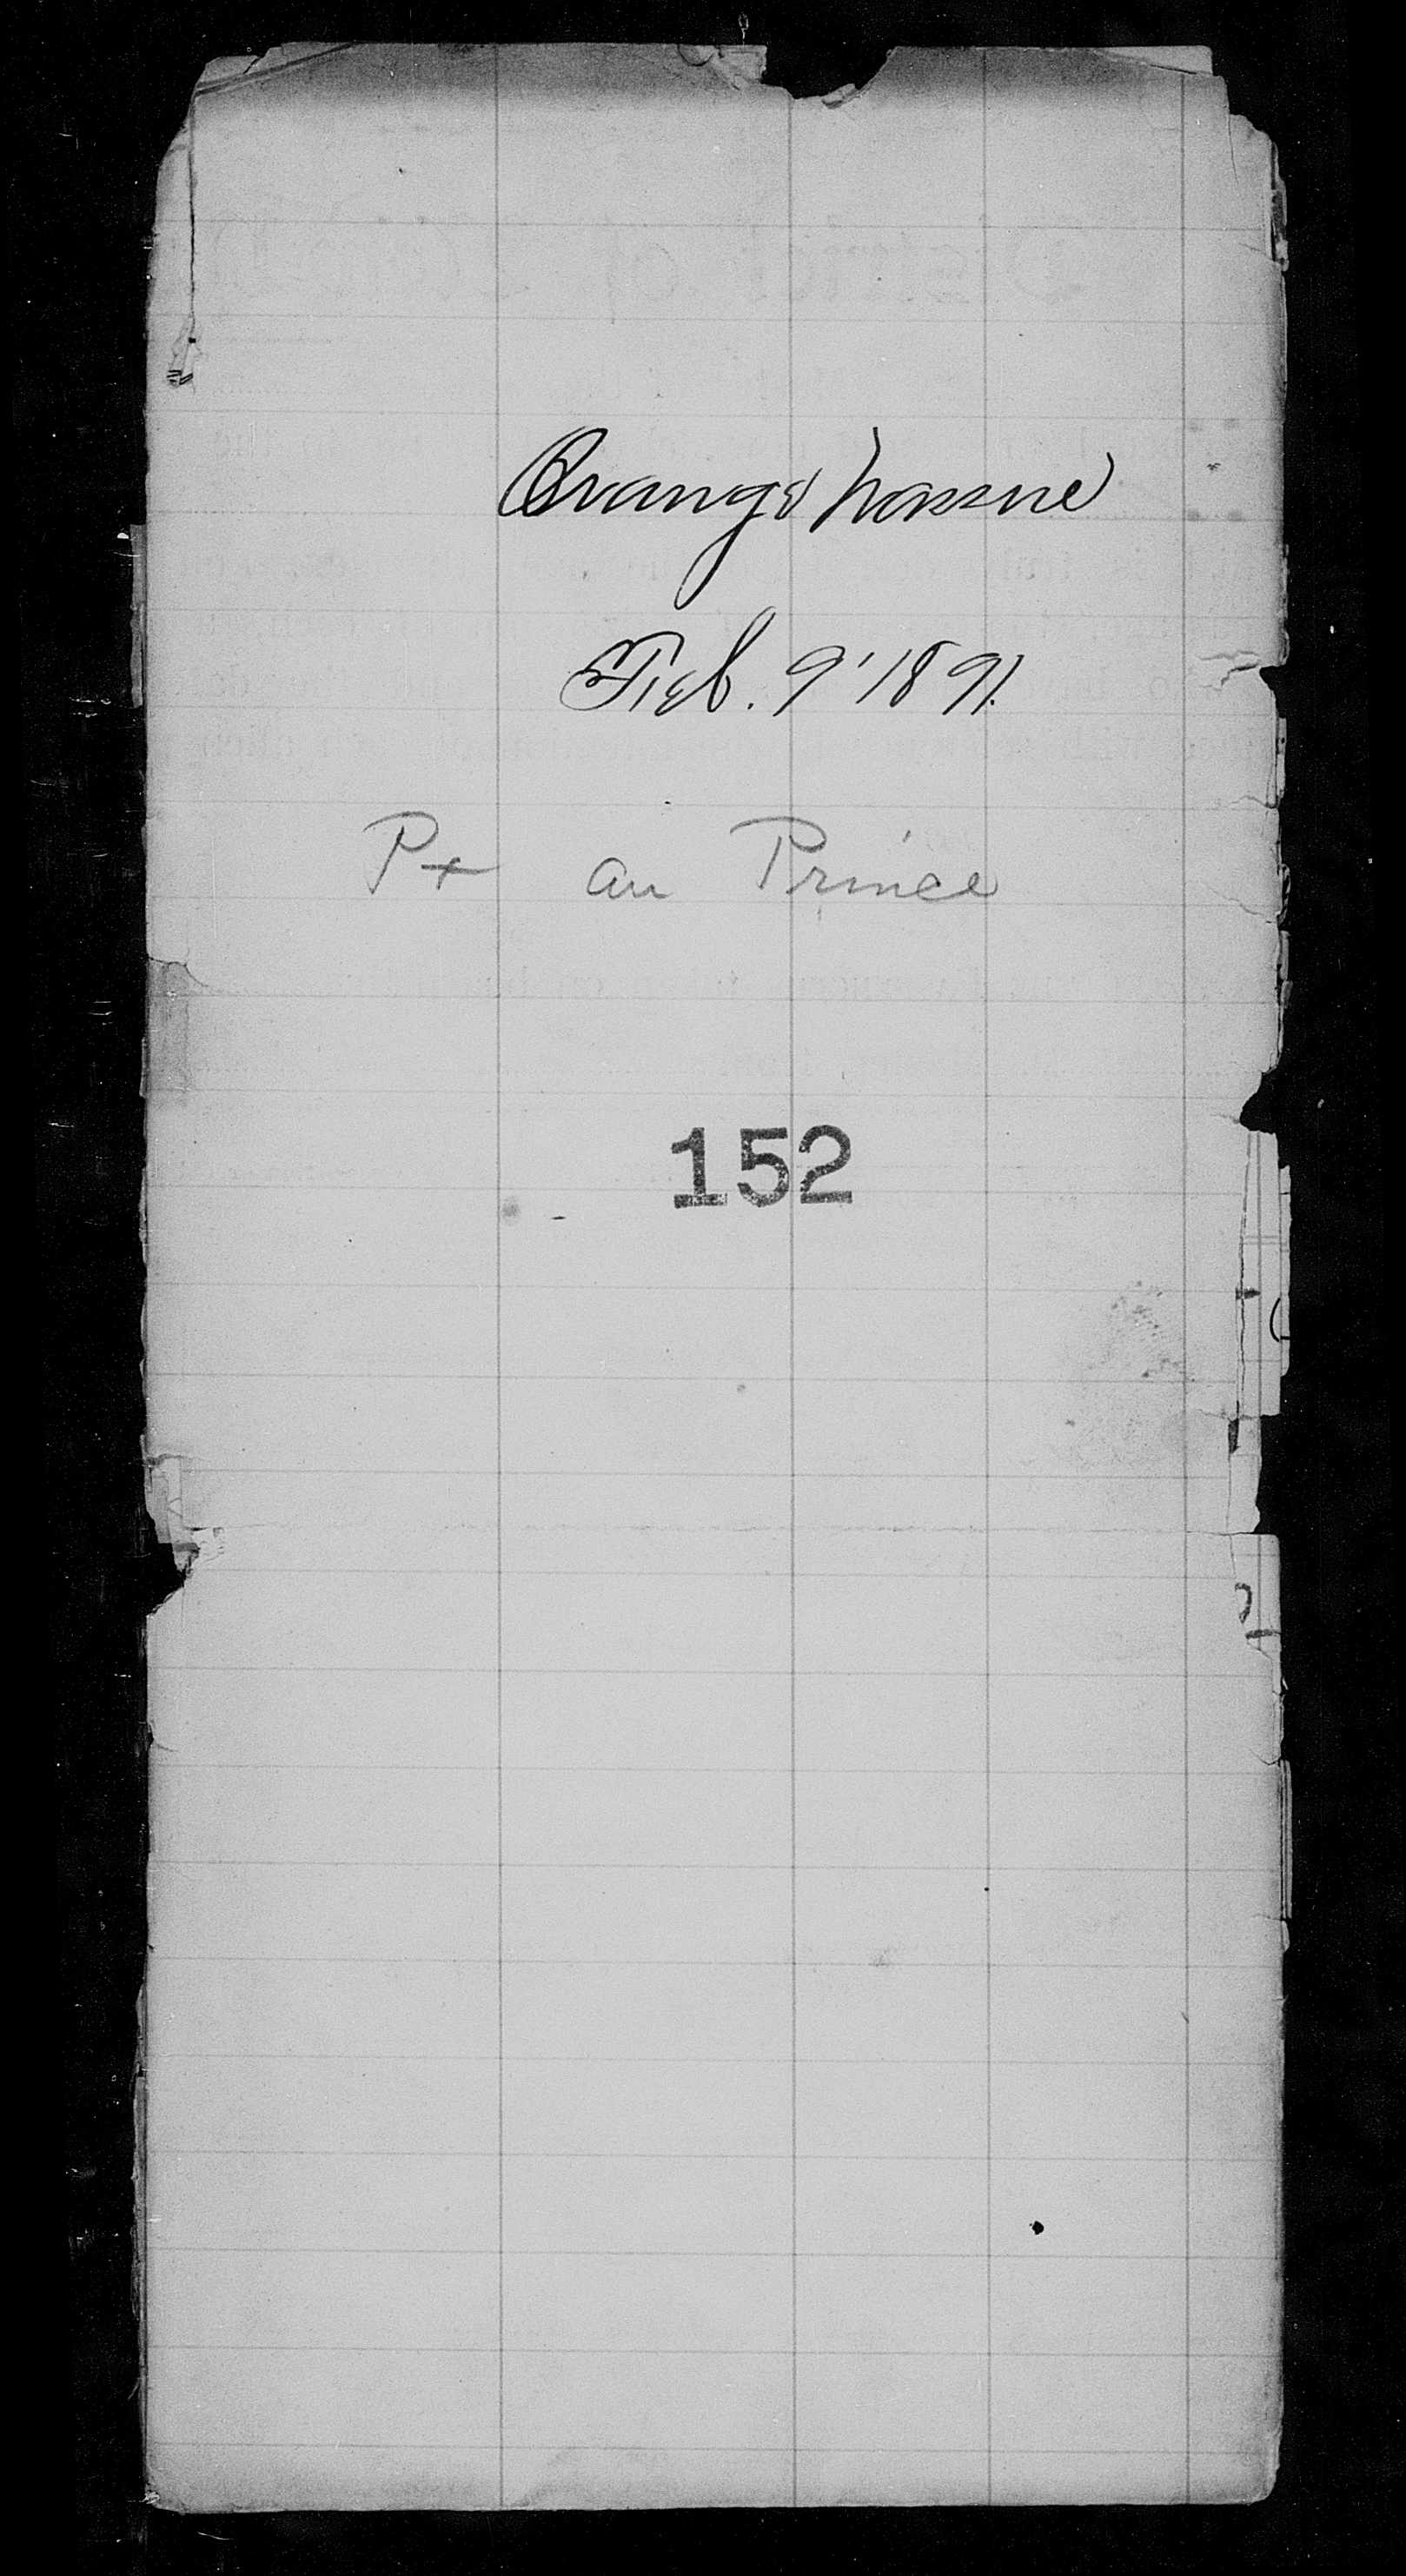 Orange Nassau
Feb. 9' 1891.
Pt au Prince
152